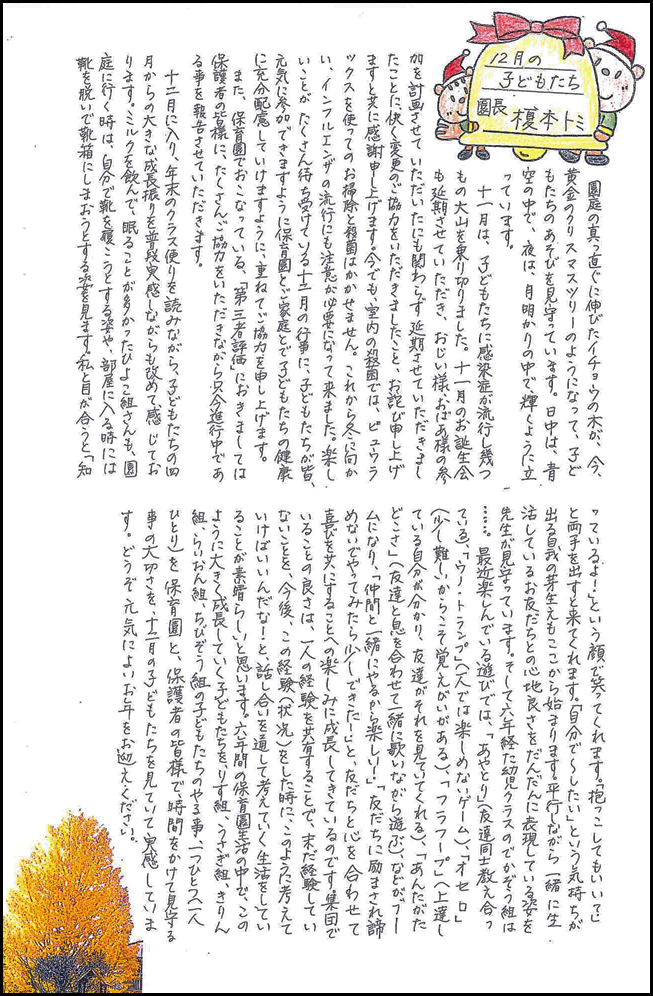 12月の
子どもたち
園長 榎本トミ
園庭の真っ直ぐに伸びたイチョウの木が、今、
黄金のクリスマスツリーのようになって、子ど
もたちのあそびを見守っています。日中は、青
空の中で、夜は、月明かりの中で輝くように立
っています。
十一月は、子どもたちに感染症が流行し幾つ
もの大山を乗り切りました。十一月のお誕生会
も延期させていただき、おじい様、おばあ様の参
加を計画させていただいたにも関わらず延期させていただきまし
たことに快く変更のご協力をいただきましたこと、お詫び申し上げ
ますと共に感謝申し上げます。今でも、室内の殺菌では、ピュウラ
ックスを使ってのお掃除と殺菌はかかせません。これから冬に向か
い、インフルエンザの流行にも注意が必要になって来ました。楽し
いことがたくさん待ち受けている十二月の行事に、子どもたちが皆、
元気に参加できますように保育園とご家庭とで子どもたちの健康
に充分配慮していけますように、重ねてご協力を申し上げます。
また、保育園でおこなっている、「第三者評価」におきましては
保護者の皆様に、たくさんご協力をいただきながら只今進行中であ
る事を報告させていただきます。
十二月に入り、年末のクラス便りを読みながら、子どもたちの四
月からの大きな成長振りを普段実感しながらも改めて感じてお
ります。ミルクを飲んで、眠ることが多かったひよこ組さんも、園
庭に行く時は、自分で靴を履こうとする姿や、部屋に入る時には
靴を脱いで靴箱にしまおうとする姿を見ます。私と目が合うと「知
っているよ!」という顔で笑ってくれます。「抱っこしてもいい?」
と両手を出すと来てくれます。「自分で～したい」という気持ちが
出る自我の芽生えもここから始まります。平行しながら一緒に生
活しているお友だちとの心地良さをだんだんに表現している姿を
先生が見守っています。そして六年経た幼児クラスのでかぞう組は
……。最近楽しんでいる遊びでは、「あやとり」(友達同士教え合っ
ている)、「ウノ・トランプ」(一人では楽しめないゲーム)、「オセロ」
(少し難しいからこそ覚えがいがある)、「フラフープ」(上達し
ている自分が分かり、友達がそれを見ていてくれる)、「あんたがた
どこさ」(友達と息を合わせて一緒に歌いながら遊ぶ)、などがブー
ムになり、「仲間と一緒にやるから楽しい!」「友だちに励まされ諦
めないでやってみたら少しできた!」と、友だちと心を合わせて
喜びを共にすることへの楽しみに成長してきているのです。集団で
いることの良さは、一人の経験を共有することで、未だ経験してい
ないことを、今後、この経験(状況)をした時に、このように考えて
いけばいいんだな!と、話し合いを通して考えていく生活をしてい
ることが素晴らしいと思います。六年間の保育園生活の中で、この
ように大きく成長していく子どもたちを、りす組、うさぎ組、きりん
組、らいおん組、ちびぞう組の子どもたちのやる事、一つひとつ(一人
ひとり)を保育園と、保護者の皆様で、時間をかけて見守る
事の大切さを、十二月の子どもたちを見ていて実感していま
す。どうぞ元気によいお年をお迎えください。